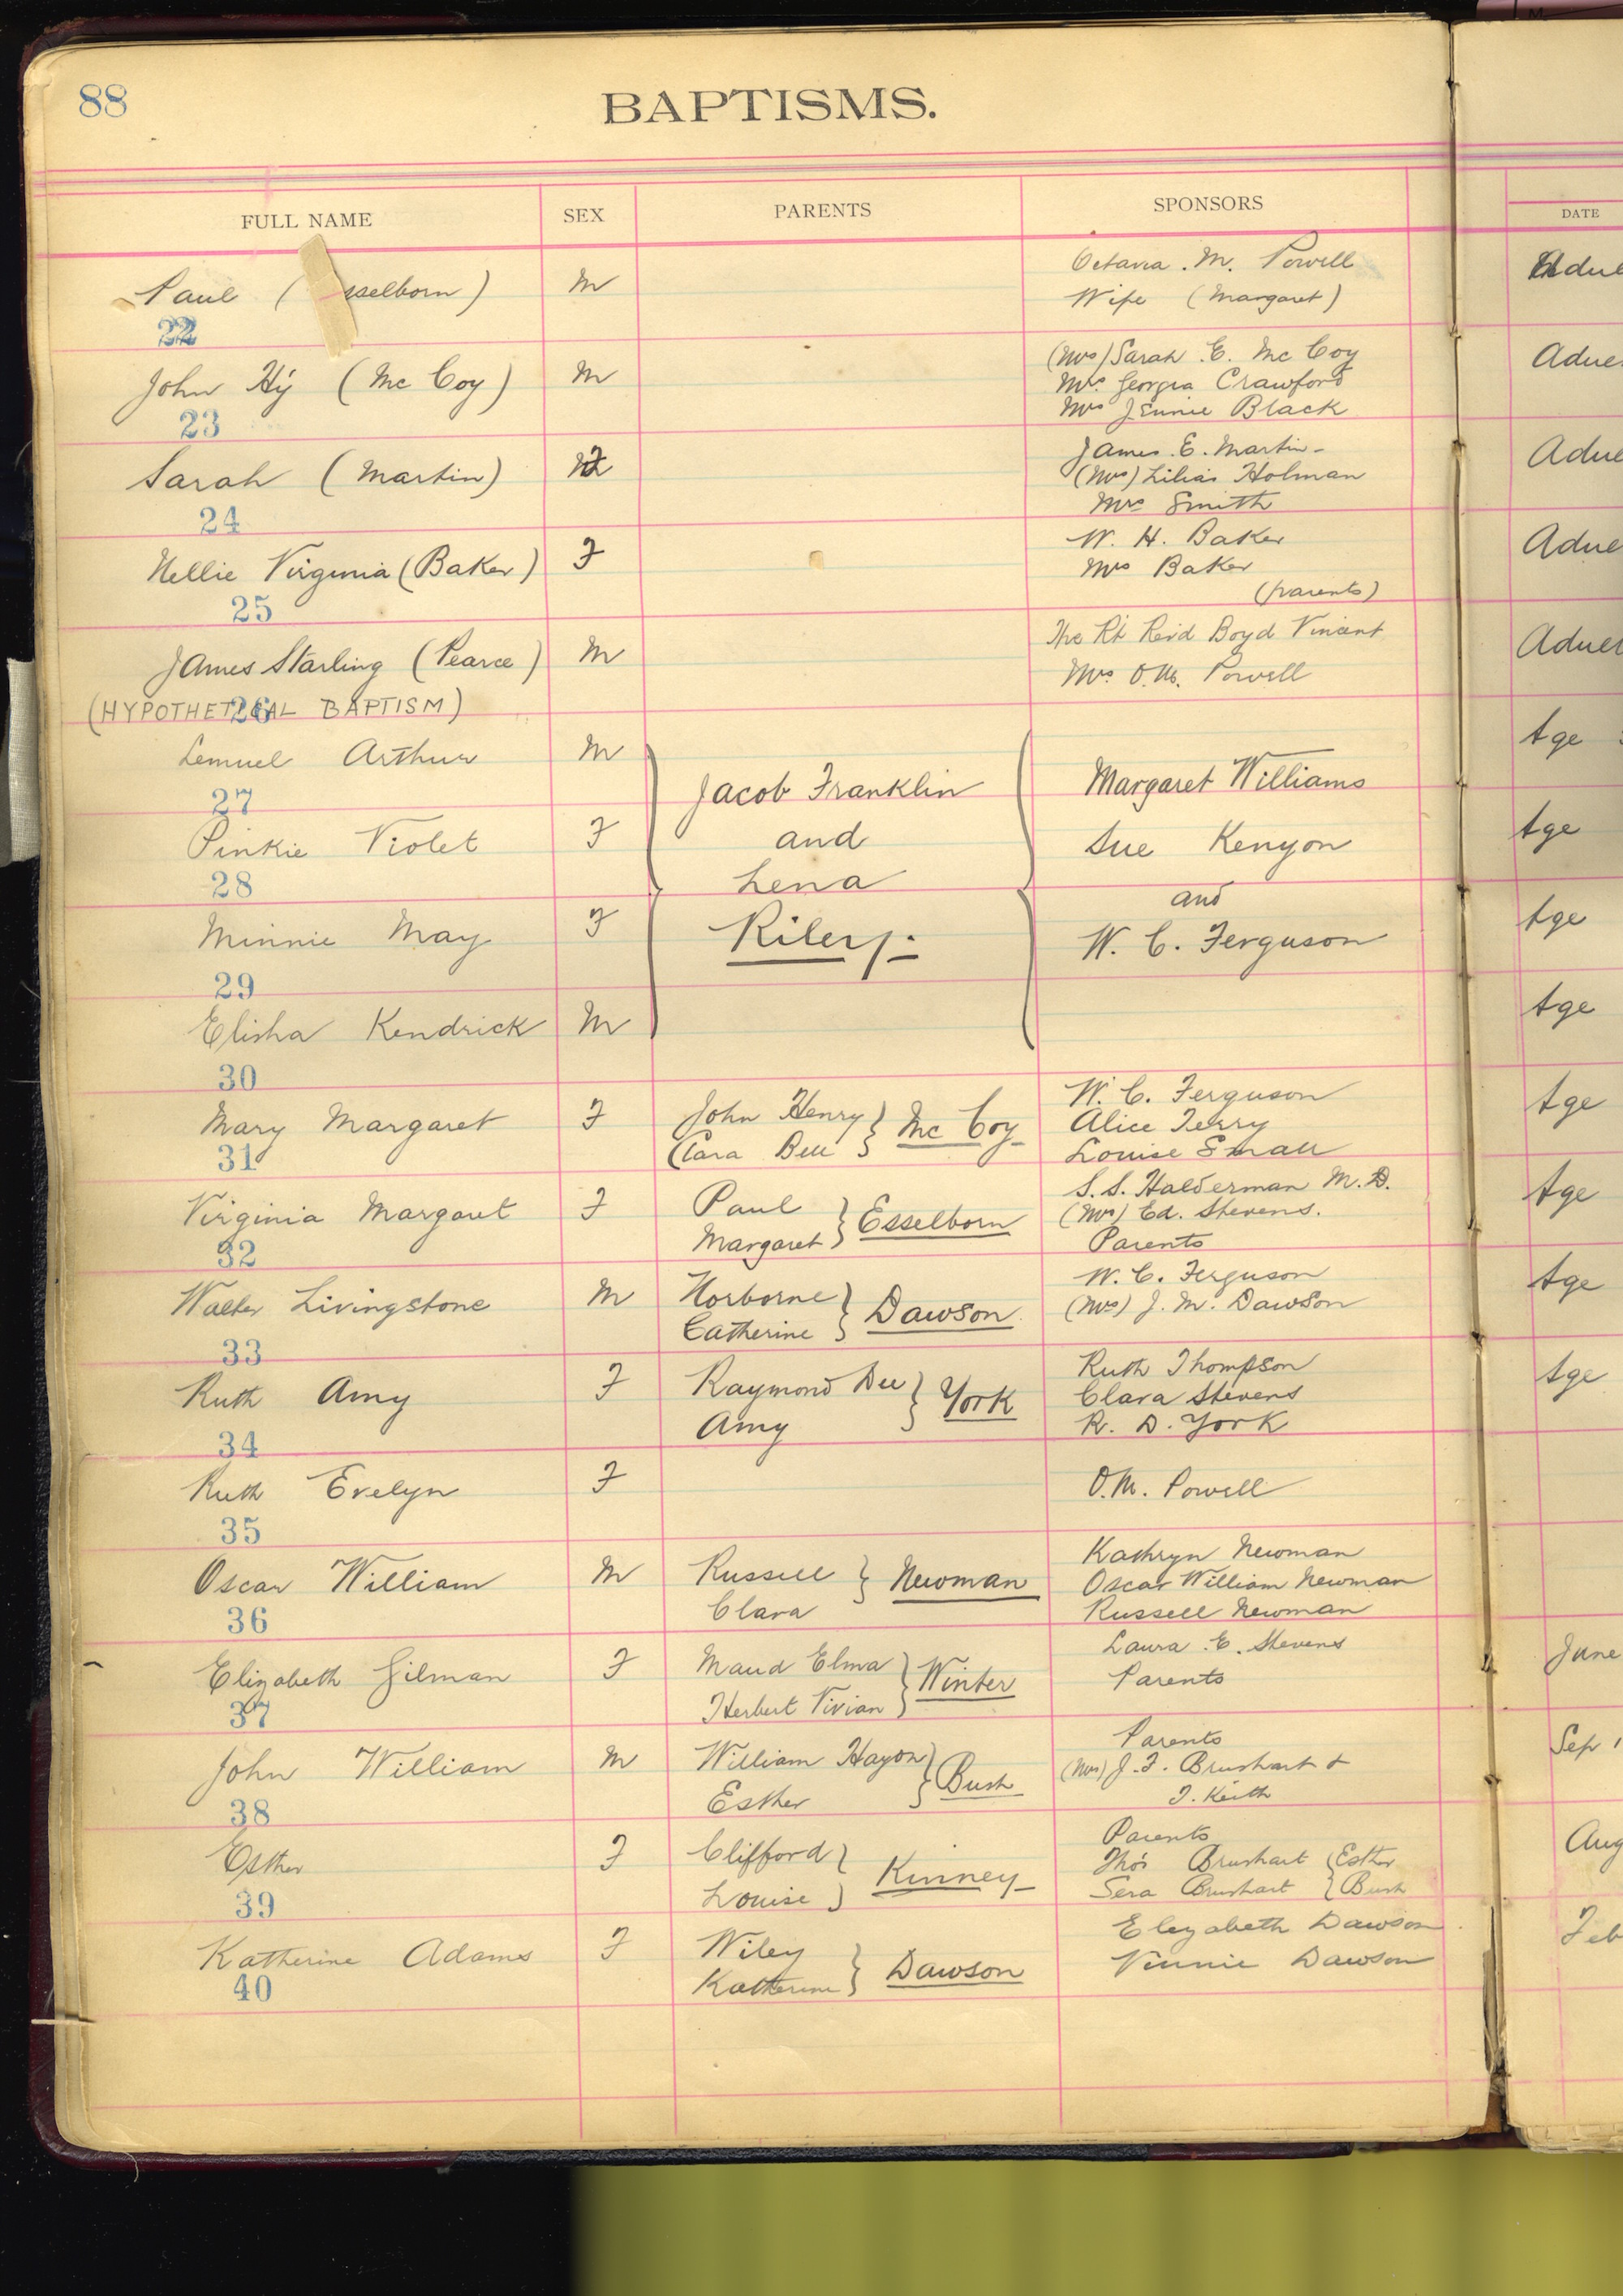 88
BAPTISMS.
FULL NAME SEX PARENTS SPONSORS DATE
Paul ( sselborn) M Octavia . M. Powell
Wife (Margaret)
22
John Hy (Mc Coy) M (Mrs) Sarah . E. Mc Coy
Mrs Georgia Crawford
Mrs Jennie Black
23
Sarah (Martin) F James . E. Martin -
(Mrs) Lilias Holman
Mrs Smith
24
Nellie Virginia (Baker) F W. H. Baker
Mrs Baker
(parents)
25
James Starling (Pearce) M The Rt Revd Boyd Vincent
Mrs O. M. Powell
(HYPOTHETICAL BAPTISM)
26
Lemuel Arthur M Age
27
Jacob Franklin Margaret Williams
Pinkie Violet F and Sue Kenyon Age
28
Lena and
Minnie May F Riley:- W. C. Ferguson Age
29
Elisha Kendrick M Age
30
Mary Margaret F John Henry } Mc Coy W. C. Ferguson Age
Clara Bell Alice Terry
Louise Small
31
Virginia Margaret F Paul } Esselborn S. S. Halderman M. D. Age
Margaret (Mrs) Ed. Stevens.
Parents
32
Walter Livingstone M Norborne } Dawson W. C. Ferguson Age
Catherine (Mrs) J. M. Dawson
33
Ruth Amy F Raymond Dee } York Ruth Thompson Age
Amy Clara Stevens
R. D. York
34
Ruth Evelyn F O. M. Powell
35
Oscar William M Russell } Newman Kathryn Newman
Clara Oscar William Newman
Russell Newman
36
Elizabeth Gilman F Maud Elma } Winter Laura . E. Stevens June
Herbert Vivian Parents
37
John William M William Hayon } Bush Parents Sep
Esther (Mrs) J. F. Brushart &
T. Keith
38
Esther F Clifford } Kinney Parents Aug
Louise Thos Brushart { Esther
Sera Brushart { Bush
39
Katherine Adams F Wiley } Dawson Elezabeth Dawson Feb
Katherine Vinnie Dawson
40